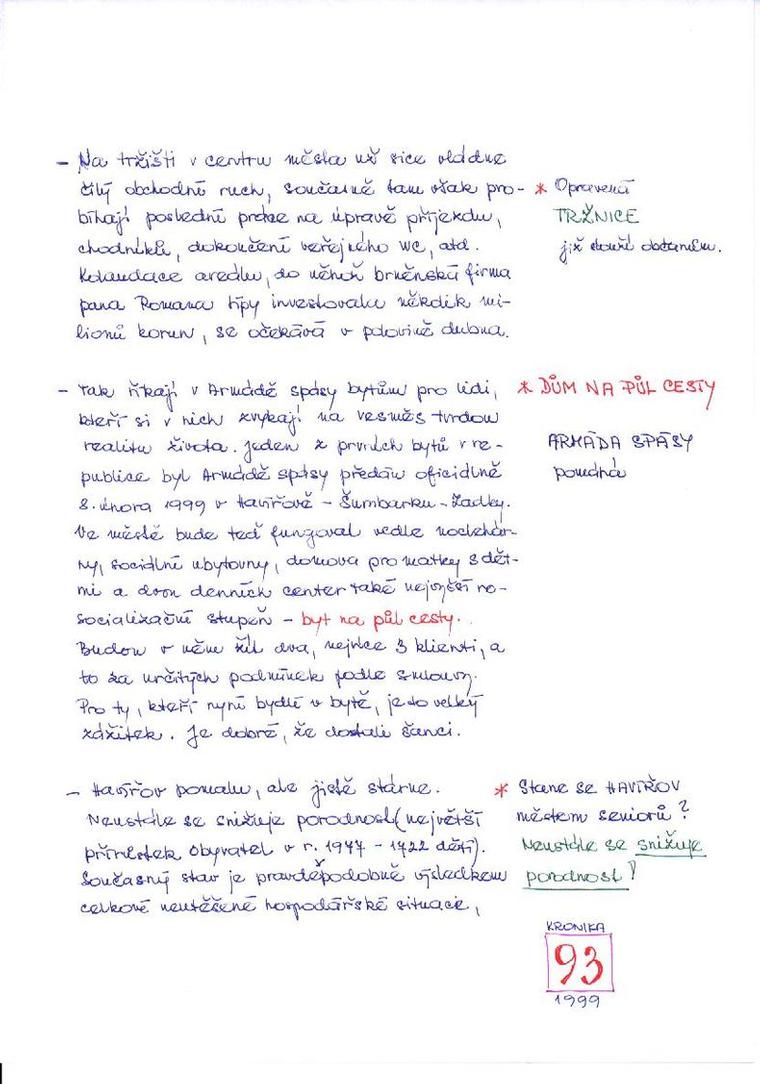 – Na tržišti v centru města už sice vládne
čilý obchodní ruch, současně tam však pro-
bíhají poslední práce na úpravě příjezdu,
chodníků, dokončení veřejného WC, atd.
Kolaudace areálu, do něhož brněnská firma
pana Romana Hípy investovala několik mi-
lionů korun, se očekává v polovině dubna.
* Opravená
TRŽNICE
již slouží občanům.
– Tak říkají v Armádě spásy bytům pro lidi,
kteří si v nich zvykají na vesměs tvrdou
realitu života. Jeden z prvních bytů v re-
publice byl Armádě spásy předán oficiálně
8. února 1999 v Havířově – Šumbarku – Zadky.
Ve městě bude teď fungovat vedle noclehár-
ny, sociální ubytovny, domova pro matky s dět-
mi a dvou denních center také nejvyšší re-
socializační stupeň – byt na půl cesty.
Budou v něm žít dva, nejvíce 3 klienti, a
to za určitých podmínek podle smlouvy.
Pro ty, kteří nyní bydlí v bytě, je to velký
zážitek. Je dobré, že dostali šanci.
* DŮM NA PŮL CESTY
ARMÁDA SPÁSY
pomáhá
– Havířov pomalu, ale jistě stárne.
Neustále se snižuje porodnost (největší
přírůstek obyvatel v r. 1977 – 1722 dětí).
Současný stav je pravděpodobně výsledkem
celkové neutěšené hospodářské situace,
* Stane se HAVÍŘOV
městem seniorů?
Neustále se snižuje
porodnost!
KRONIKA
93
1999